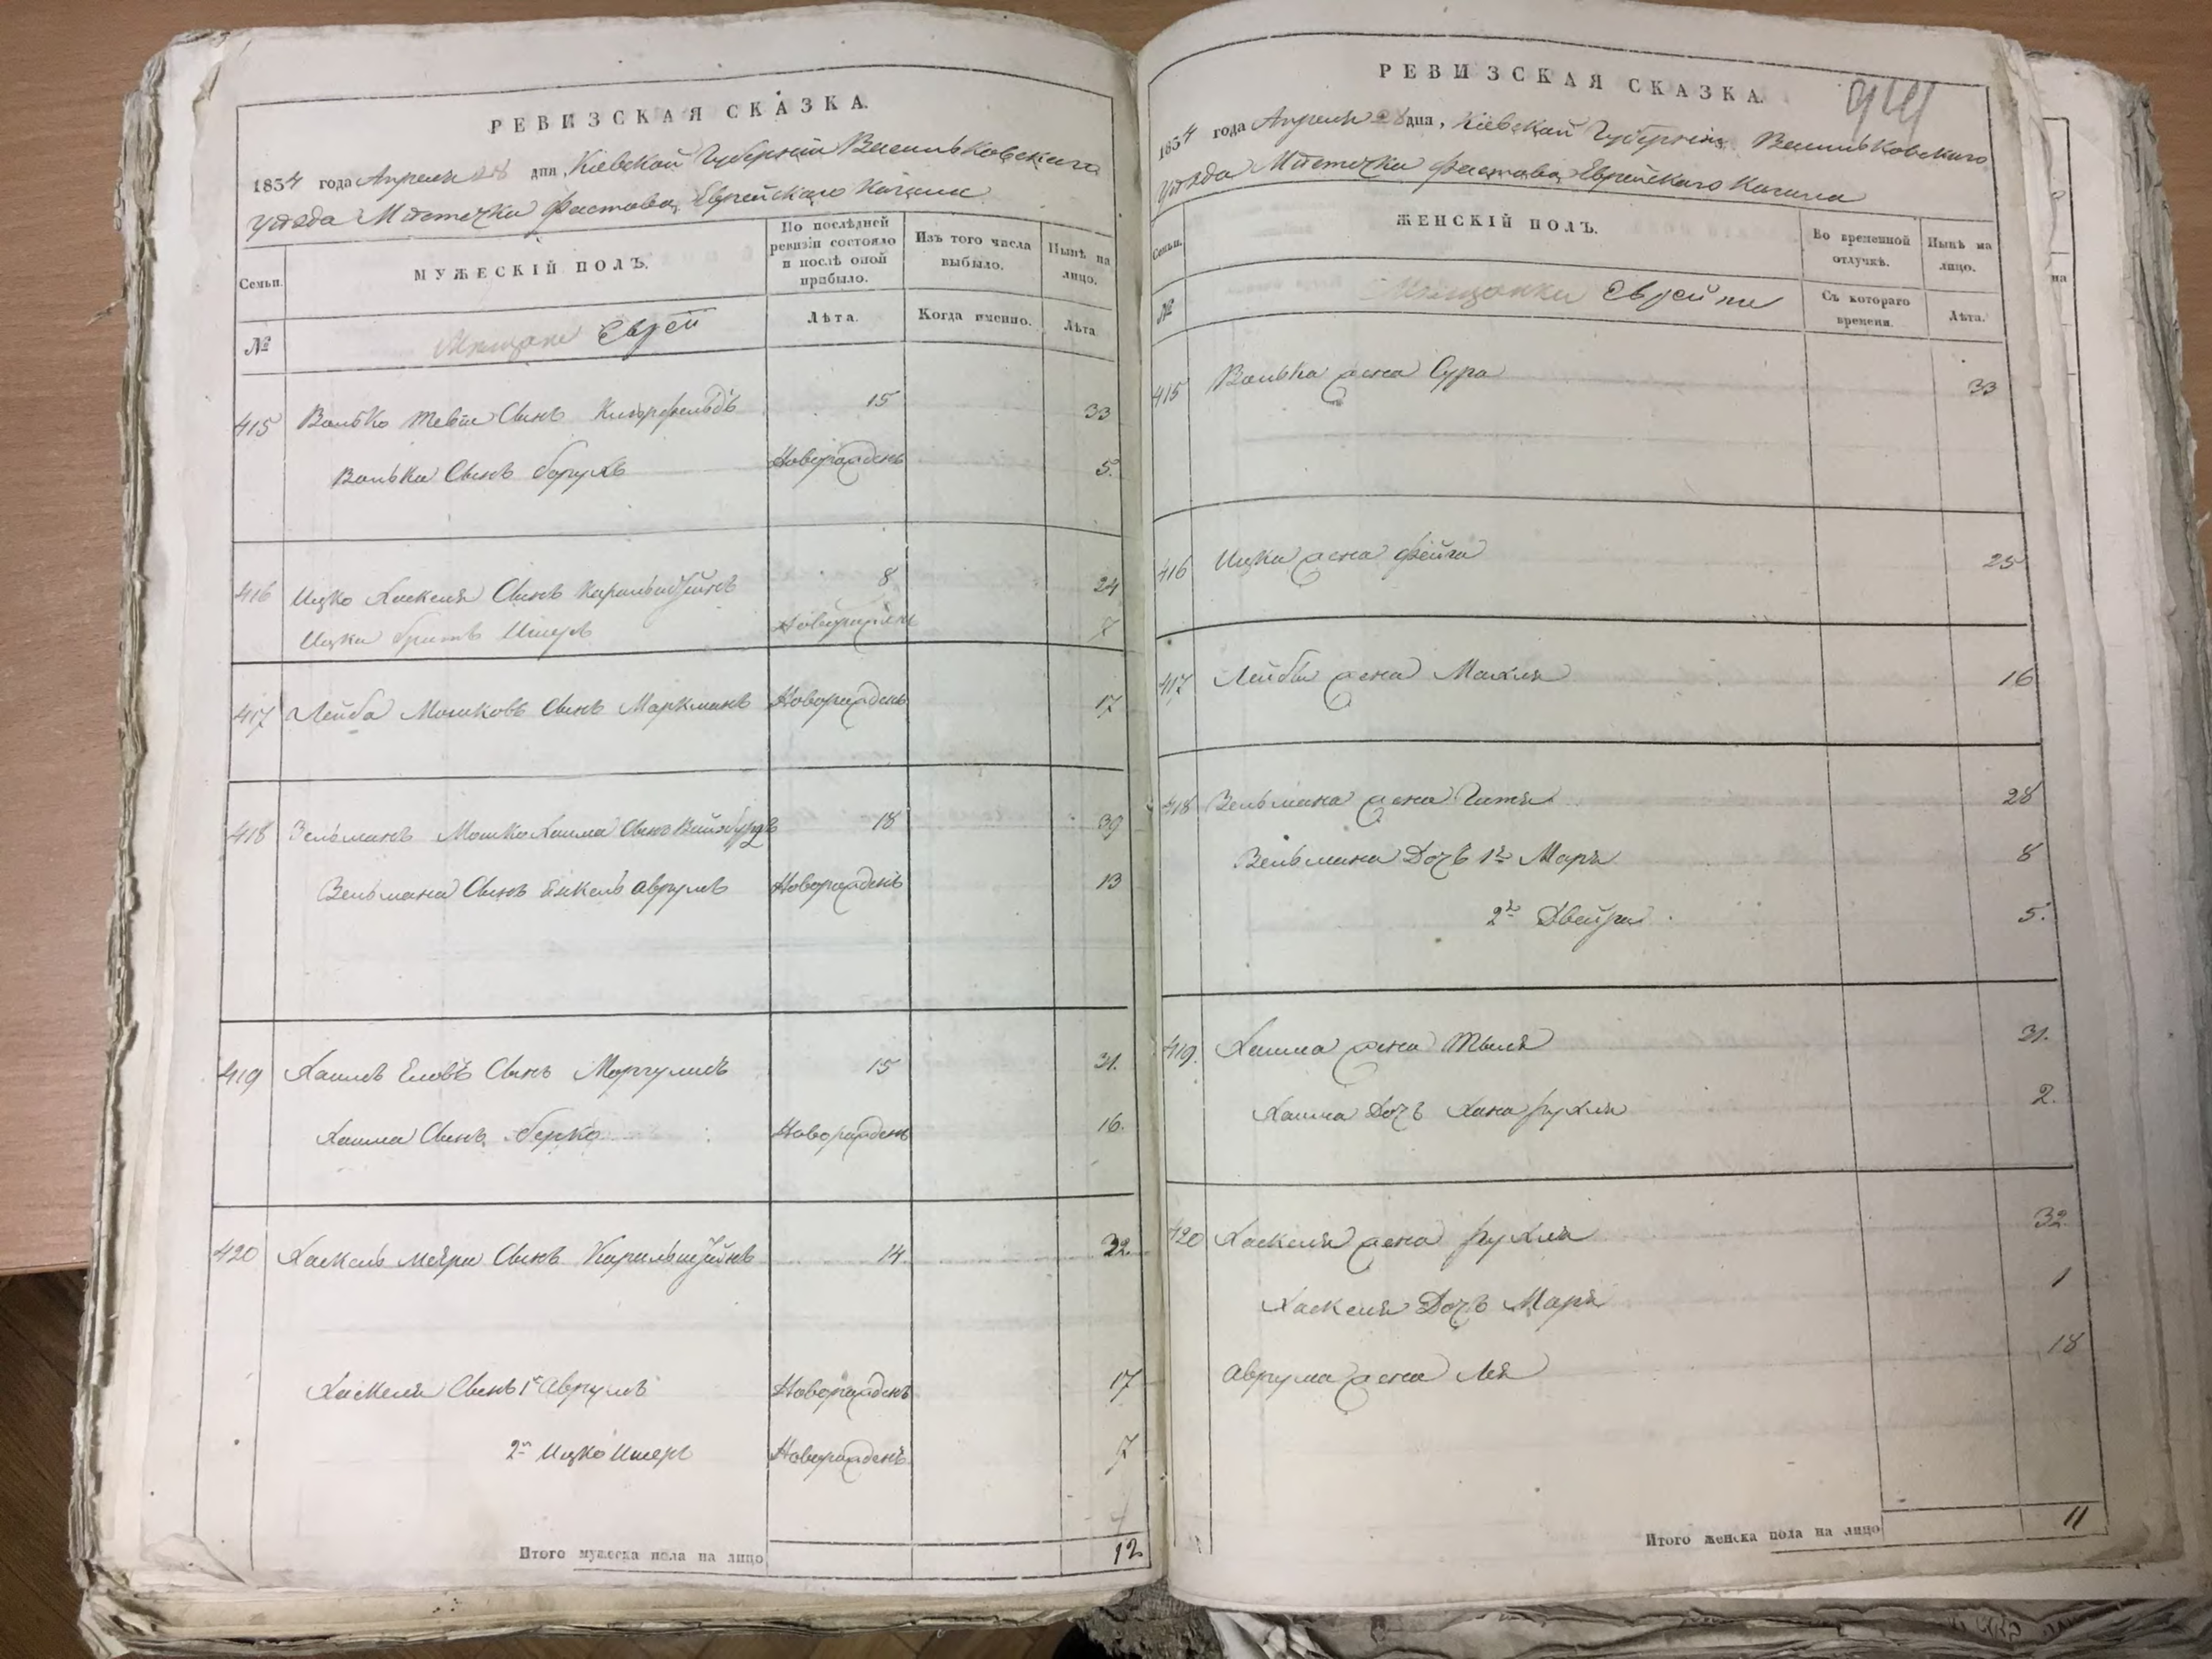 РЕВИЗСКАЯ СКАЗКА.
1834 года Апреля 28 дня, Кіевской Губерніи Васильковскаго
уѣзда Мѣстечка Фастова Еврейскаго Кагала
Семьи.
МУЖЕСКІЙ ПОЛЪ.
По послѣдней ревизіи состояло и послѣ оной прибыло.
Изъ того числа выбыло.
Нынѣ на лицо.
№
Мѣщане Евреи
Лѣта.
Когда именно.
Лѣта
415 Волько Тевіи Сынъ 15 33
Волька Сынъ Борухъ Новорожденъ 5.
416 Ицко Хаскеля Сынъ Каральштейнъ 8 24
Ицка братъ Новорожденъ 7
417 Лейба Мошковъ Сынъ Маркманъ Новорожденъ 17
418 Зельманъ Мошко Хаима Сынъ 18 39
Зельмана Сынъ Енкель Аврумъ Новорожденъ 13
419 Хаимъ Сынъ Моргулисъ 15 31.
Хаима Сынъ Берко Новорожденъ 16.
420 Хаскель Меяра Сынъ Каральштейнъ 14 32.
Хаскеля Сынъ 1й Аврумъ Новорожденъ 17
2й Ицко Новорожденъ 7
Итого мужеска пола на лицо 12
РЕВИЗСКАЯ СКАЗКА.
1834 года Апреля 28 дня, Кіевской Губерніи Васильковскаго
уѣзда Мѣстечка Фастова Еврейскаго Кагала
Семьи.
ЖЕНСКІЙ ПОЛЪ.
Во временной отлучкѣ.
Нынѣ на лицо.
№
Мѣщанки Еврейки
Съ котораго времени.
Лѣта.
415 Волька жена Сура 33
416 Ицка жена Фейга 25
417 Лейбы жена Махля 16
418 Зельмана жена Гитя 28
Зельмана Дочь 1я Маря 8
2я Двейра 5.
419. Хаима жена 31.
Хаима Дочь Хана Рухля 2.
420 Хаскеля жена Рухля 32.
Хаскеля Дочь Маря 1
Аврума жена Лея 18
Итого женска пола на лицо 11